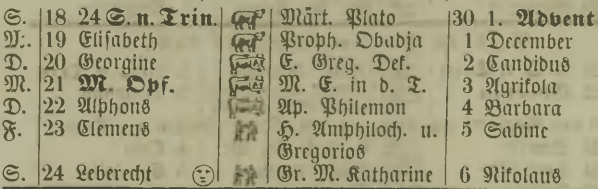 S. 18 24 S. n. Trin. Märt. Plato 30 1. Advent
M. 19 Elisabeth Proph. Obadja 1 December
D. 20 Georgine E. Greg. Dek. 2 Candidus
M. 21 M. Opf. M. E. in d. T. 3 Agrikola
D. 22 Alphons Ap. Philemon 4 Barbara
F. 23 Clemens H. Amphiloch. u. 5 Sabine
Gregorios
S. 24 Leberecht Gr. M. Katharine 6 Nikolaus